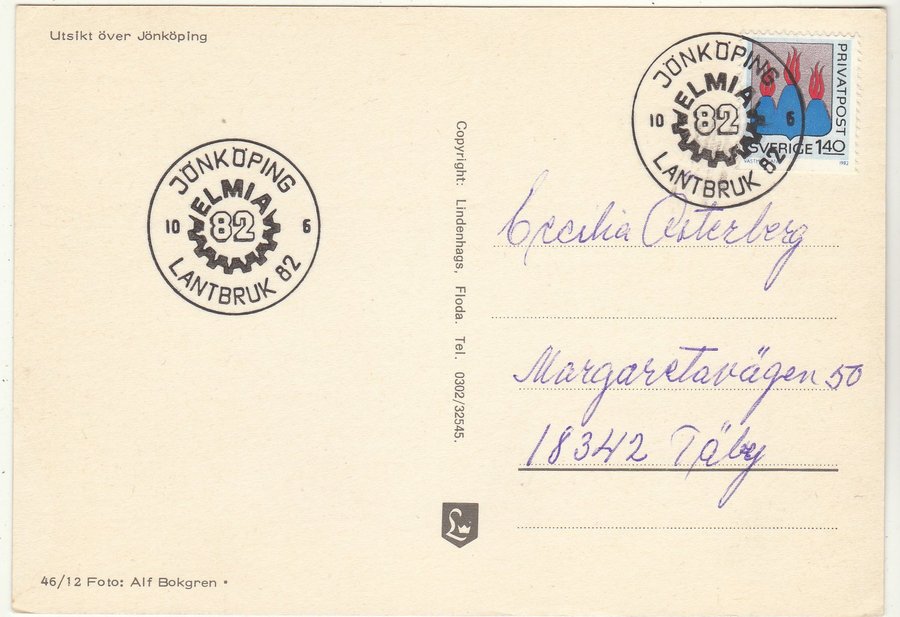 Utsikt över Jönköping
JÖNKÖPING
ELMIA
10 82 6
LANTBRUK 82
46/12 Foto: Alf Bokgren •
Copyright: Lindenhags, Floda. Tel. 0302/32545.
L
JÖNKÖPING
ELMIA
10 82 6
LANTBRUK 82
PRIVATPOST
SVERIGE 140
1982
Cecilia Österberg
Margaretavägen 50
18342 Täby